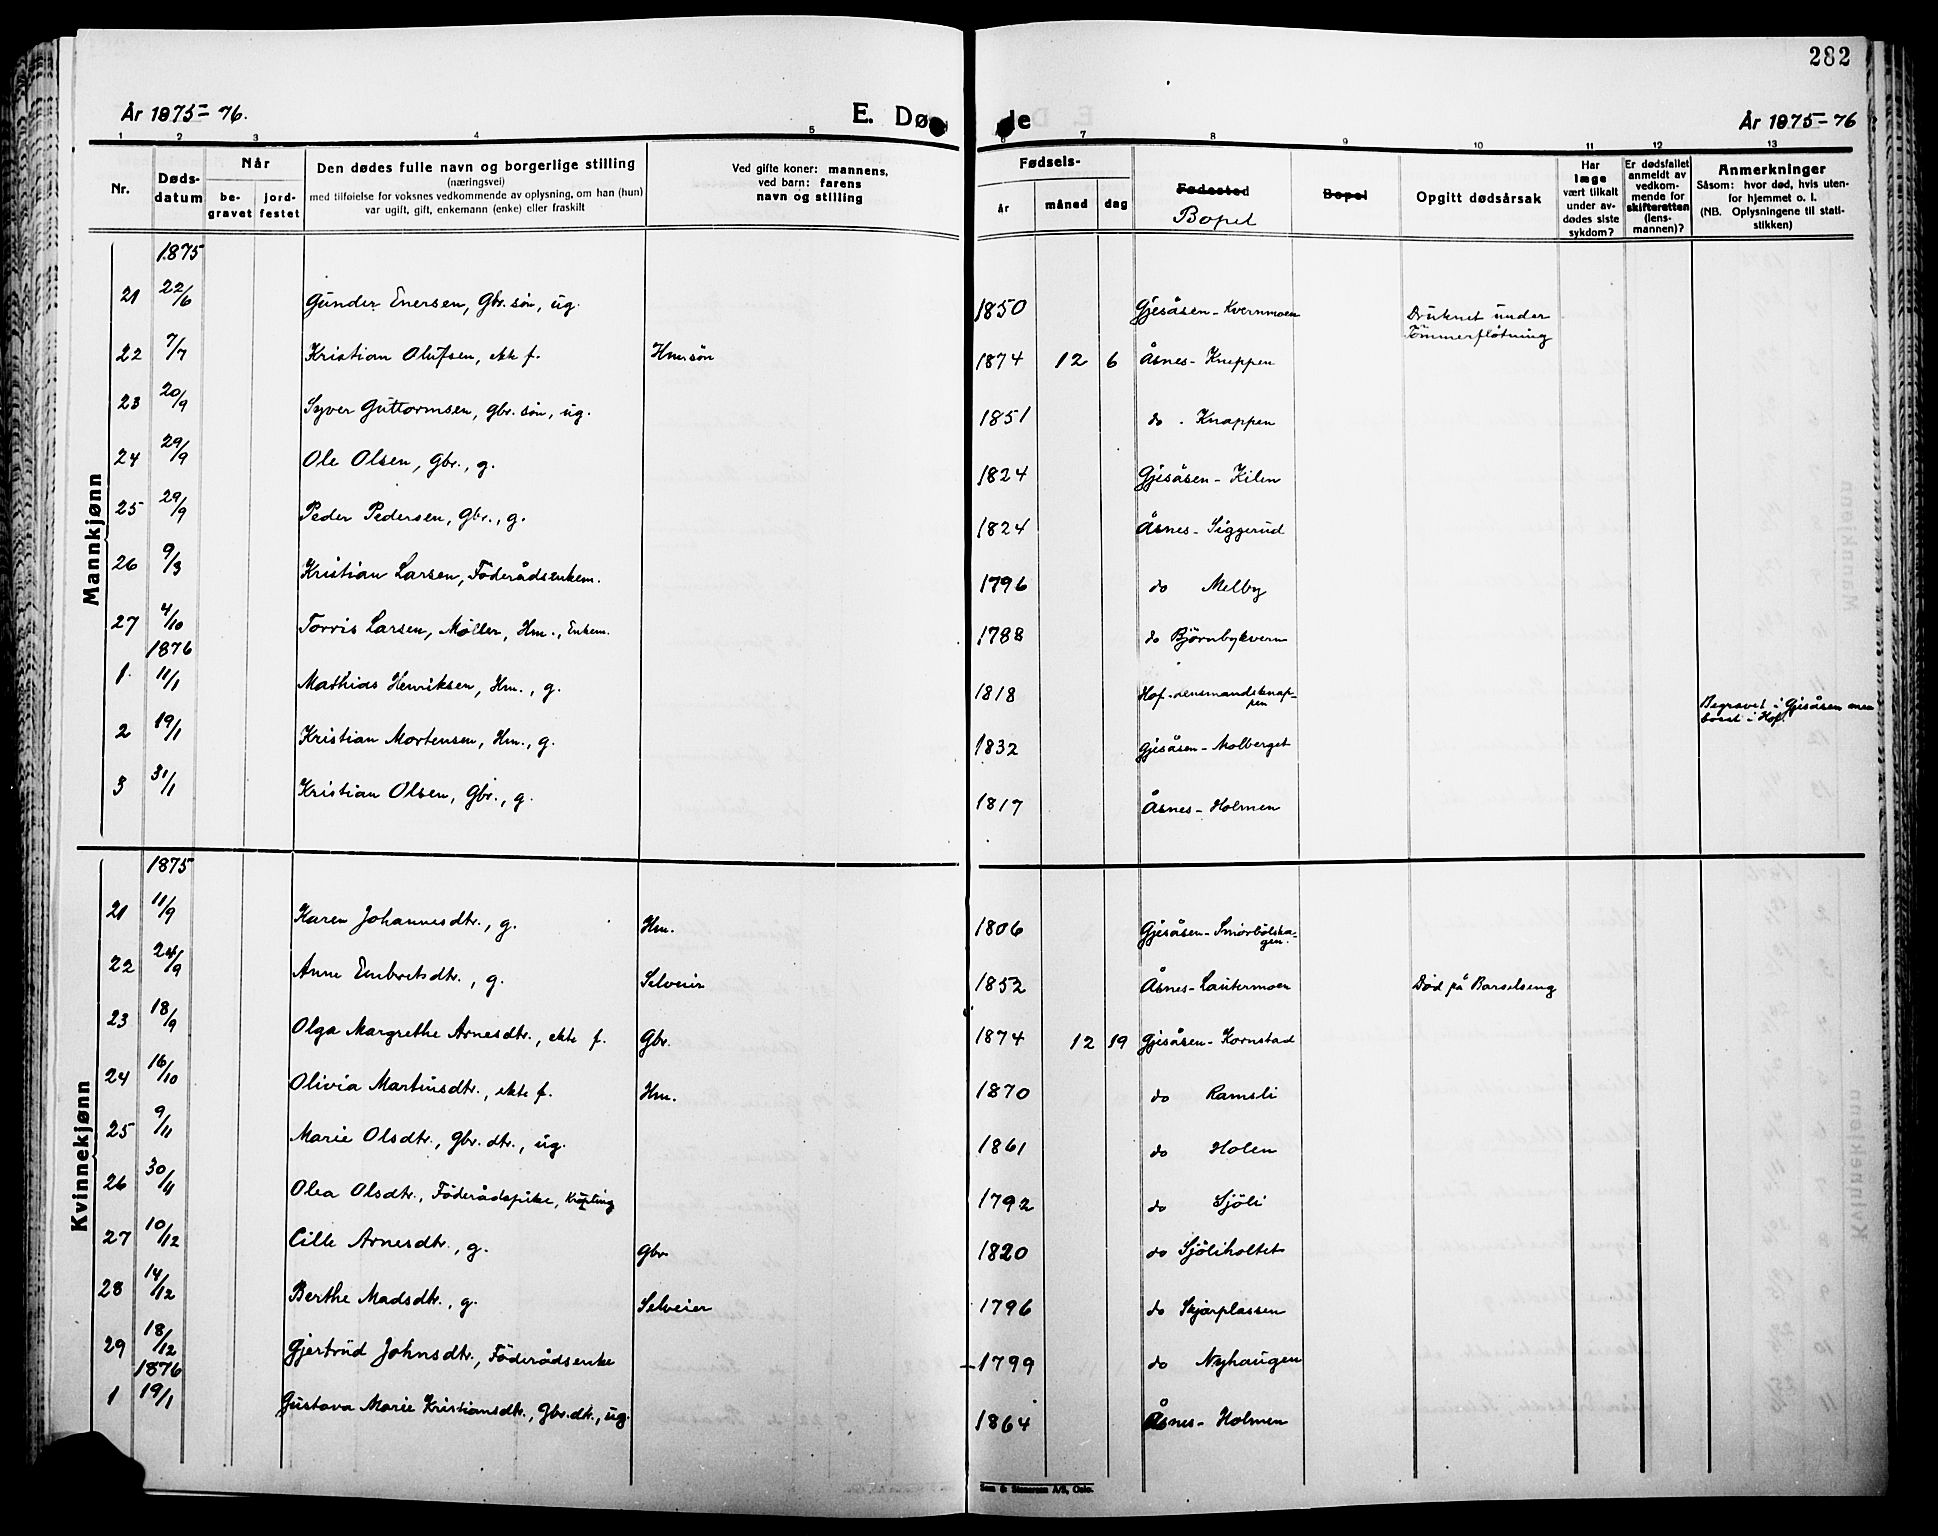 282
År 1875-76.
E. Dø de
År 1875-76
1 2 3 4 5 6 7 8 9 10 11 12 13
Nr.
Døds-
datum
Når
be-
gravet
jord-
festet
Den dødes fulle navn og borgerlige stilling
(næringsvei)
med tilføielse for voksnes vedkommende av oplysning, om han (hun)
var ugift, gift, enkemann (enke) eller fraskilt
Ved gifte koner: mannens,
ved barn: farens
navn og stilling
Fødsels-
år måned dag
Fødested
Bopel
Bopel
Opgitt dødsårsak
Har
læge
vært tilkalt
under av-
dødes siste
sykdom?
Er dødsfallet
anmeldt av
vedkom-
mende for
skifteretten
(lens-
mannen)?
Anmerkninger
Såsom: hvor død, hvis uten-
for hjemmet o. l.
(NB. Oplysningene til stati-
stikken)
Mannkjønn
1875
21 22/6 Gunder Enersen, Gbr. søn, ug. 1850 Gjesåsen - Kvernmoen Druknet under
Tømmerfløtning
22 7/7 Kristian Olufsen, ekte f. Hm.søn 1874 12 6 Åsnes - Knappen
23 20/9 Syver Guttormsen, gbr. søn, ug. 1851 do . Knappen
24 29/9 Ole Olsen, Gbr., g. 1824 Gjesåsen - Kilen
25 29/9 Peder Pedersen, Gbr., g. 1824 Åsnes - Siggerud
26 9/3 Kristian Larsen, Föderådsenkem. 1796 do Melby
27 4/10 Torris Larsen, Møller, Hm., Enkem. 1788 do Björnbykvern
1876
1. 11/1 Mathias Henriksen, Hm., g. 1818 Hof - Lensmandsknap-
pen Begravet i Gjesåsen men
boset i Hof.
2 19/1 Kristian Mortensen, Hm., g. 1832 Gjesåsen - Molberget
3 31/1 Kristian Olsen, Gbr., g. 1817 Åsnes - Holmen
Kvinnekjønn
1875
21 11/9 Karen Johannesdtr., g. Hm. 1806 Gjesåsen - Smörbölsha-
gen.
22 24/9 Anne Embretsdtr., g. Selveier 1852 Åsnes - Lautermoen Död på Barselseng
23 18/9 Olga Margrethe Arnesdtr., ekte f. Gbr. 1874 12 19 Gjesåsen - Kornstad
24 16/10 Olivia Martinsdtr., ekte f. Hm. 1870 do Ramsli
25 9/11 Marie Olsdtr., Gbr. dtr., ug. 1861 do Holen
26 30/11 Olea Olsdtr., Föderådspike, Kröpling 1792 do Sjöli
27 10/12 Cille Arnesdtr., g. Gbr 1820 do Sjöliholtet
28 14/12 Berthe Madsdtr., g. Selveier 1796 do Skjærplassen
29 18/12 Gjertrud Johnsdtr., Föderådsenke 1799 do Nyhaugen
1876
1 19/1 Gustava Marie Kristiansdtr., Gbr.dtr., ug. 1864 Åsnes - Holmen
Sem & Stenersen A/S, Oslo.